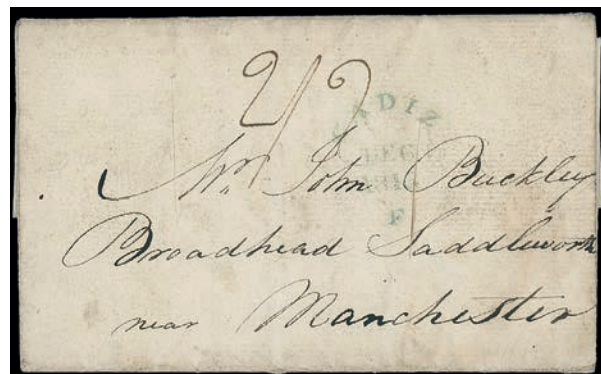 2/2
CADIZ
DEC
181
F
Mr. John Buckley
Broadhead Saddleworth
near Manchester